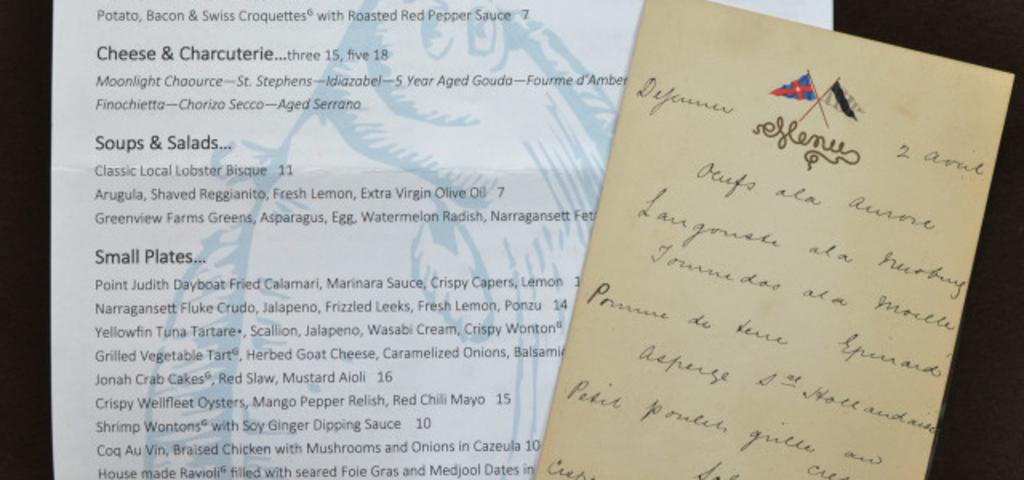 Potato, Bacon & Swiss Croquettesᴳ with Roasted Red Pepper Sauce 7
Cheese & Charcuterie...three 15, five 18
Moonlight Chaource—St. Stephens—Idiazabel—5 Year Aged Gouda—Fourme d'Amber
Finochietta—Chorizo Secco—Aged Serrano
Soups & Salads...
Classic Local Lobster Bisque 11
Arugula, Shaved Reggianito, Fresh Lemon, Extra Virgin Olive Oil 7
Greenview Farms Greens, Asparagus, Egg, Watermelon Radish, Narragansett Fet
Small Plates...
Point Judith Dayboat Fried Calamari, Marinara Sauce, Crispy Capers, Lemon 1
Narragansett Fluke Crudo, Jalapeno, Frizzled Leeks, Fresh Lemon, Ponzu 14
Yellowfin Tuna Tartare•, Scallion, Jalapeno, Wasabi Cream, Crispy Wontonᴳ
Grilled Vegetable Tartᴳ, Herbed Goat Cheese, Caramelized Onions, Balsamic
Jonah Crab Cakesᴳ, Red Slaw, Mustard Aioli 16
Crispy Wellfleet Oysters, Mango Pepper Relish, Red Chili Mayo 15
Shrimp Wontonsᴳ with Soy Ginger Dipping Sauce 10
Coq Au Vin, Braised Chicken with Mushrooms and Onions in Cazuela 10
House made Ravioliᴳ filled with seared Foie Gras and Medjool Dates in
Dejeuner
Menu
2 avril
Oeufs a la aurore
Langouste a la Newburg
Tournedos a la Moelle
Pomme de terre Epinard
Asperge Sce Hollandaise
Petit poulet grille au
cres